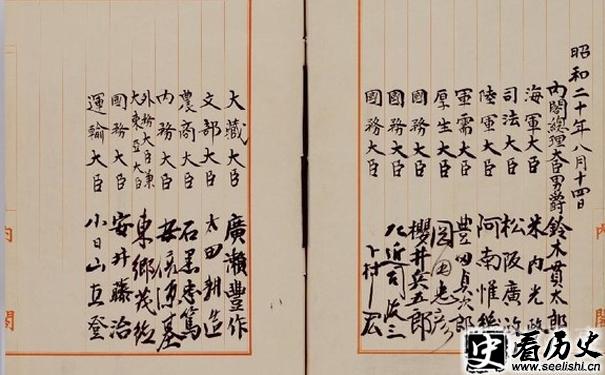 昭和二十年八月十四日
内閣總理大臣男爵 鈴木貫太郎
海軍大臣 米内光政
司法大臣 松阪廣政
陸軍大臣 阿南惟幾
軍需大臣 豊田貞次郎
厚生大臣 岡田忠彦
國務大臣 櫻井兵五郎
國務大臣 左近司政三
國務大臣 下村宏
大藏大臣 廣瀬豐作
文部大臣 太田耕造
農商大臣 石黒忠篤
内務大臣 安倍源基
外務大臣兼
大東亞大臣 東郷茂徳
國務大臣 安井藤治
運輸大臣 小日山直登
内閣
史 看历史
www.seelishi.cn